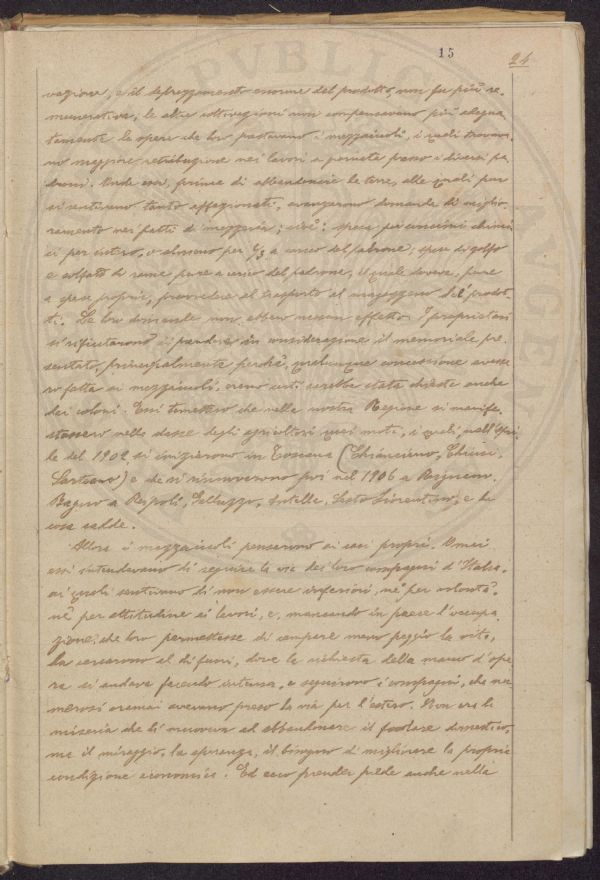 15
24
vazione, e il deprezzamento enorme del prodotto, non fu più re-
munerativa; le altre coltivazioni non compensavano più adegua-
tamente le opere che loro prestavano i mezzaiuoli, i quali trovava-
no maggiore retribuzione nei lavori a giornata presso i diversi pa-
droni. Onde essi, prima di abbandonare le terre, alle quali pur
si sentivano tanto affezionati, avanzarono domande di miglio-
ramento nei patti di mezzadria; cioè: spesa pei concimi chimi-
ci per intero, o almeno per 2/3 a carico del padrone; spesa di zolfo
e solfato di rame pure a carico del padrone, il quale doveva, pure
a spese proprie, provvedere al trasporto al magazzeno del prodot-
to. Le loro domande non ebbero nessun effetto. I proprietari
si rifiutarono di prendere in considerazione il memoriale pre-
sentato, principalmente perchè, qualunque concessione avesse-
ro fatta ai mezzaiuoli, erano certi sarebbe stata chiesta anche
dai coloni. Essi temettero che nella nostra Regione si manife-
stassero nella classe degli agricoltori quei moti, i quali, nell'Apri-
le del 1902, si iniziarono in Toscana (Chianciano, Chiusi,
Sarteano) e che si rinnovarono poi nel 1906 a Rignano,
Bagno a Ripoli, Galluzzo, Antella, Sesto Fiorentino, e
cosa salde.
Allora i mezzaiuoli pensarono ai casi propri. Ormai
essi intendevano di seguire la via dei loro compagni d'Italia,
ai quali sentivano di non essere inferiori, nè per volontà,
nè per attitudine ai lavori, e, mancando in paese l'occupa-
zione, che loro permettesse di campare meno peggio la vita,
la cercarono al di fuori, dove la richiesta della mano d'ope-
ra si andava facendo intensa, e seguirono i compagni, che nu-
merosi oramai avevano preso la via per l'estero. Non era la
miseria che li muoveva ad abbandonare il focolare domestico,
ma il miraggio, la speranza, il bisogno di migliorare la propria
condizione economica. Ed ecco prender piede anche nella